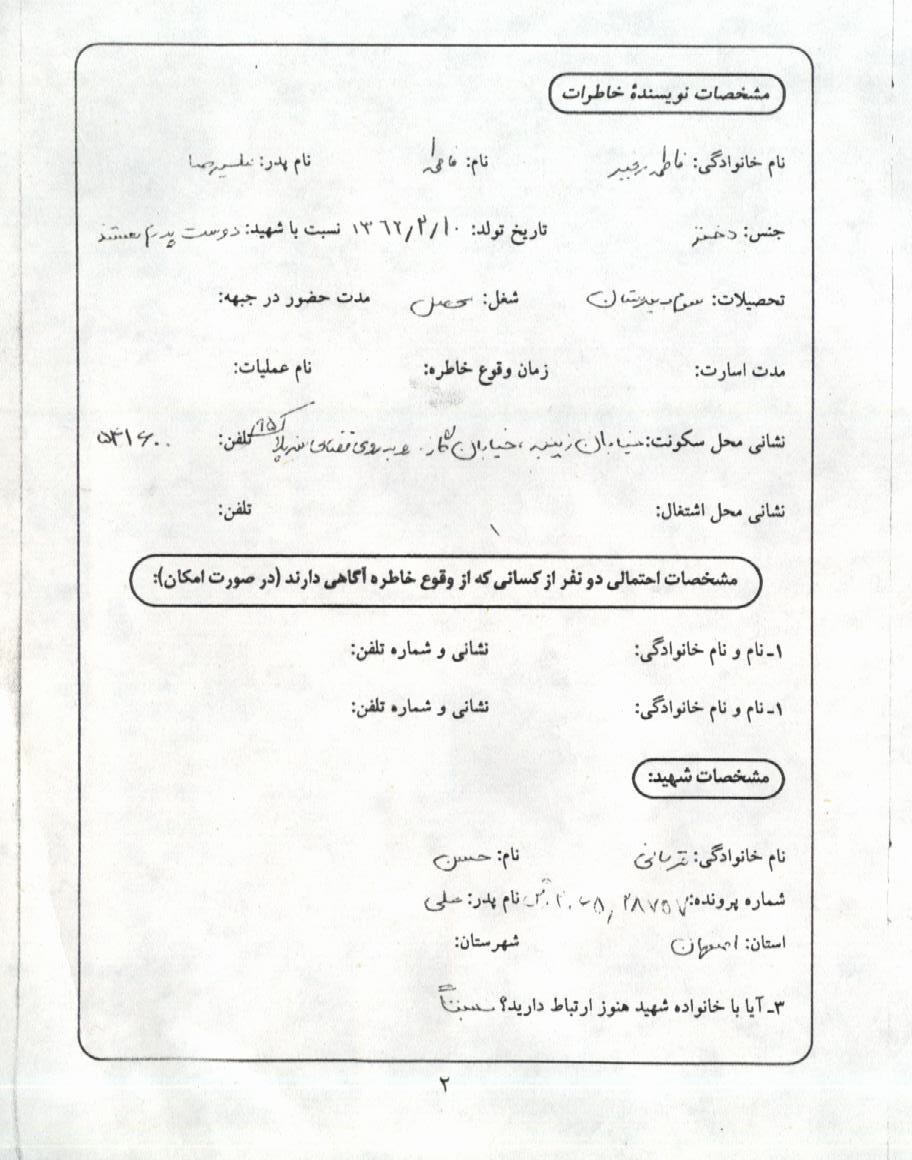 مشخصات نویسندهٔ خاطرات
نام خانوادگی: فاطمه نام: فاطمه نام پدر: علیرضا
جنس: دختر تاریخ تولد: ۱۳۶۲/۲/۱۰ نسبت با شهید: دوست پدرم هستند
تحصیلات: سوم دبیرستان شغل: محصل مدت حضور در جبهه:
مدت اسارت: زمان وقوع خاطره: نام عملیات:
نشانی محل سکونت: خیابان زینبیه، خیابان روبه‌روی پلاک تلفن:
نشانی محل اشتغال: تلفن:
مشخصات احتمالی دو نفر از کسانی که از وقوع خاطره آگاهی دارند (در صورت امکان):
۱ـ نام و نام خانوادگی: نشانی و شماره تلفن:
۱ـ نام و نام خانوادگی: نشانی و شماره تلفن:
مشخصات شهید:
نام خانوادگی: قربانی نام: حسن
شماره پرونده: نام پدر: علی
استان: اصفهان شهرستان:
۳ـ آیا با خانواده شهید هنوز ارتباط دارید؟ نسبتاً
۲